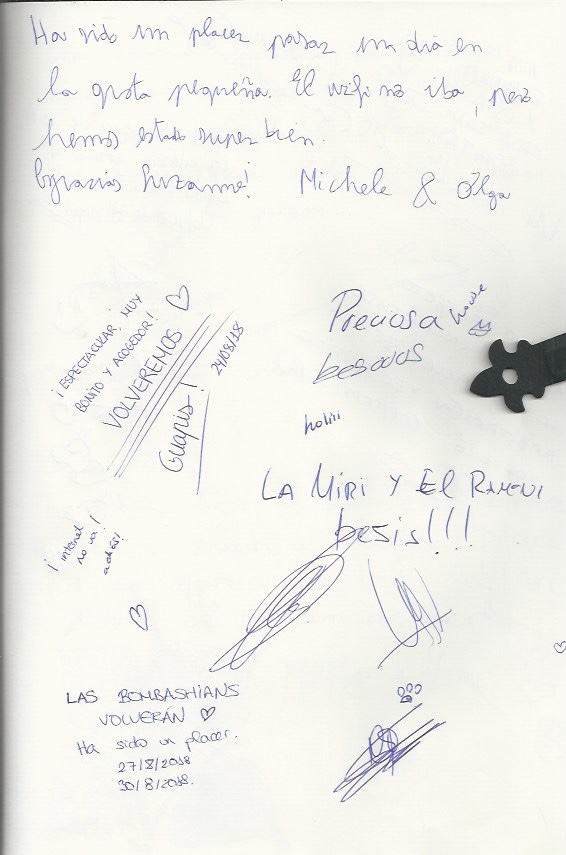 Ha sido un placer pasar un día en
la gruta pequeña. El wifi no iba, pero
hemos estado super bien.
gracias Suzanne! Michele & Olga
¡ESPECTACULAR, MUY
BONITO Y ACOGEDOR!
VOLVEREMOS
24/08/18
Guapis!
Preciosa house
besos
holiii
LA MIRI Y El RAMENI
besis!!!
¡internet
no va!
adiós!
LAS BOMBASHIANS
VOLVERÁN
Ha sido un placer.
27/8/2018
30/8/2018.